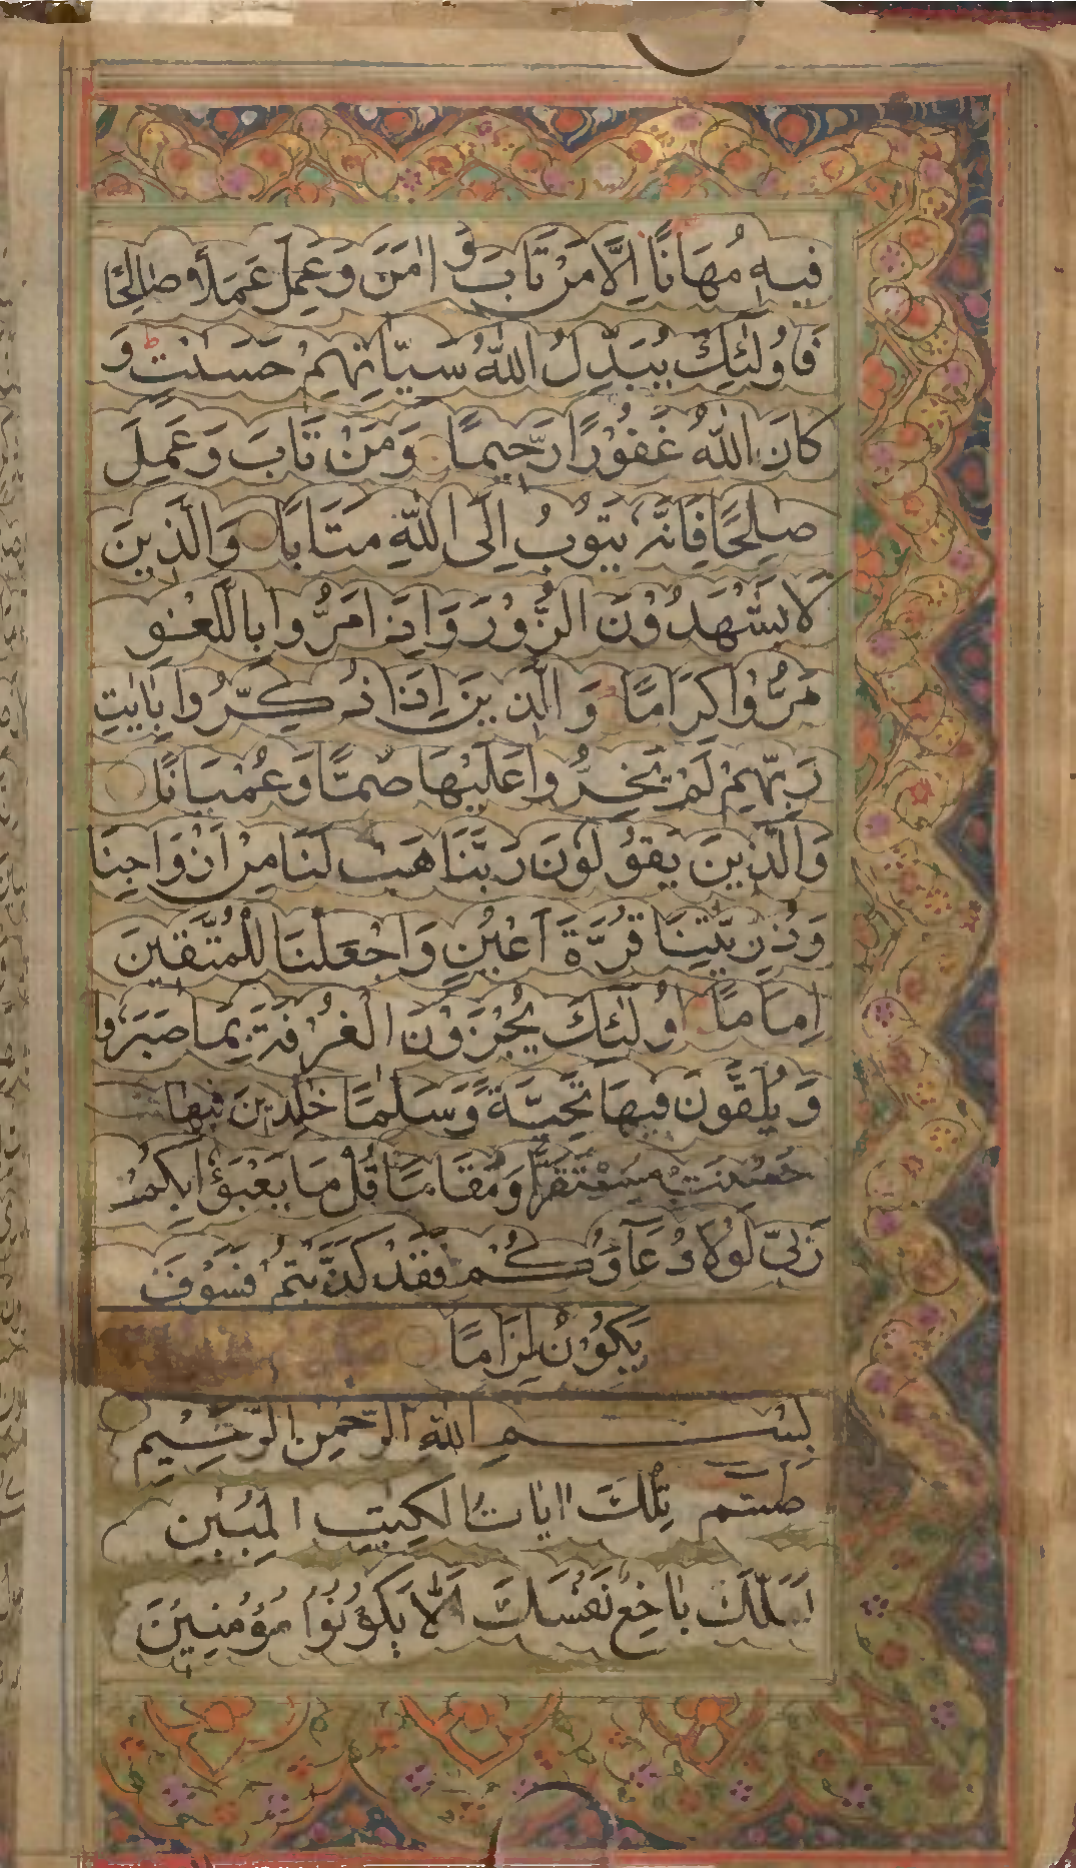 فِيهِ مُهَانًا اِلَّا مَنْ تَابَ وَ امَنَ وَعَمِلَ عَمَلًا صَالِحًا
فَاُولٰئِكَ يُبَدِّلُ اللّٰهُ سَيِّاٰتِهِمْ حَسَنٰتٍ ط وَ
كَانَ اللّٰهُ غَفُوْرًا رَحِيمًا وَمَنْ تَابَ وَعَمِلَ
صَالِحًا فَاِنَّهٗ يَتُوْبُ اِلَى اللّٰهِ مَتَابًا وَالَّذِينَ
لَا يَشْهَدُوْنَ الزُّوْرَ وَاِذَا مَرُّوا بِاللَّغْوِ
مَرُّوْا كِرَامًا وَالَّذِينَ اِذَا ذُكِّرُوا بِاٰيٰتِ
رَبِّهِمْ لَمْ يَخِرُّوا عَلَيْهَا صُمًّا وَعُمْيَانًا
وَالَّذِينَ يَقُوْلُوْنَ رَبَّنَا هَبْ لَنَا مِنْ اَزْوَاجِنَا
وَذُرِّيّٰتِنَا قُرَّةَ اَعْيُنٍ وَاجْعَلْنَا لِلْمُتَّقِينَ
اِمَامًا اُولٰئِكَ يُجْزَوْنَ الْغُرْفَةَ بِمَا صَبَرُوا
وَيُلَقَّوْنَ فِيهَا تَحِيَّةً وَّسَلٰمًا خٰلِدِينَ فِيهَا
حَسُنَتْ مُسْتَقَرًّا وَمُقَامًا قُلْ مَا يَعْبَؤُا بِكُمْ
رَبِّي لَوْلَا دُعَآؤُكُمْ فَقَدْ كَذَّبْتُمْ فَسَوْفَ
يَكُوْنُ لِزَامًا
بِسْمِ اللّٰهِ الرَّحْمٰنِ الرَّحِيمِ
طٰسٓمٓ تِلْكَ اٰيَاتُ الْكِتٰبِ الْمُبِينِ
لَعَلَّكَ بَاخِعٌ نَفْسَكَ اَلَّا يَكُوْنُوْا مُؤْمِنِيْنَ